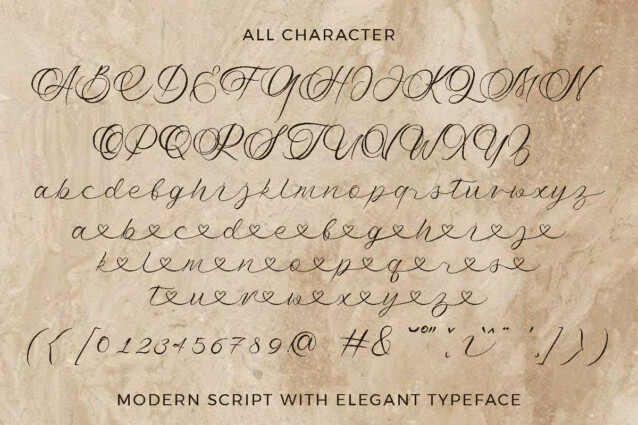 ALL CHARACTER
ABCDEFGHIJKLMN
OPQRSTUVWXYZ
abcdefghijklmnopqrstuvwxyz
aebecedeeefegeheieje
kelemeneoepeqerese
teuevewexeyeze
({[0123456789!@ #&
MODERN SCRIPT WITH ELEGANT TYPEFACE